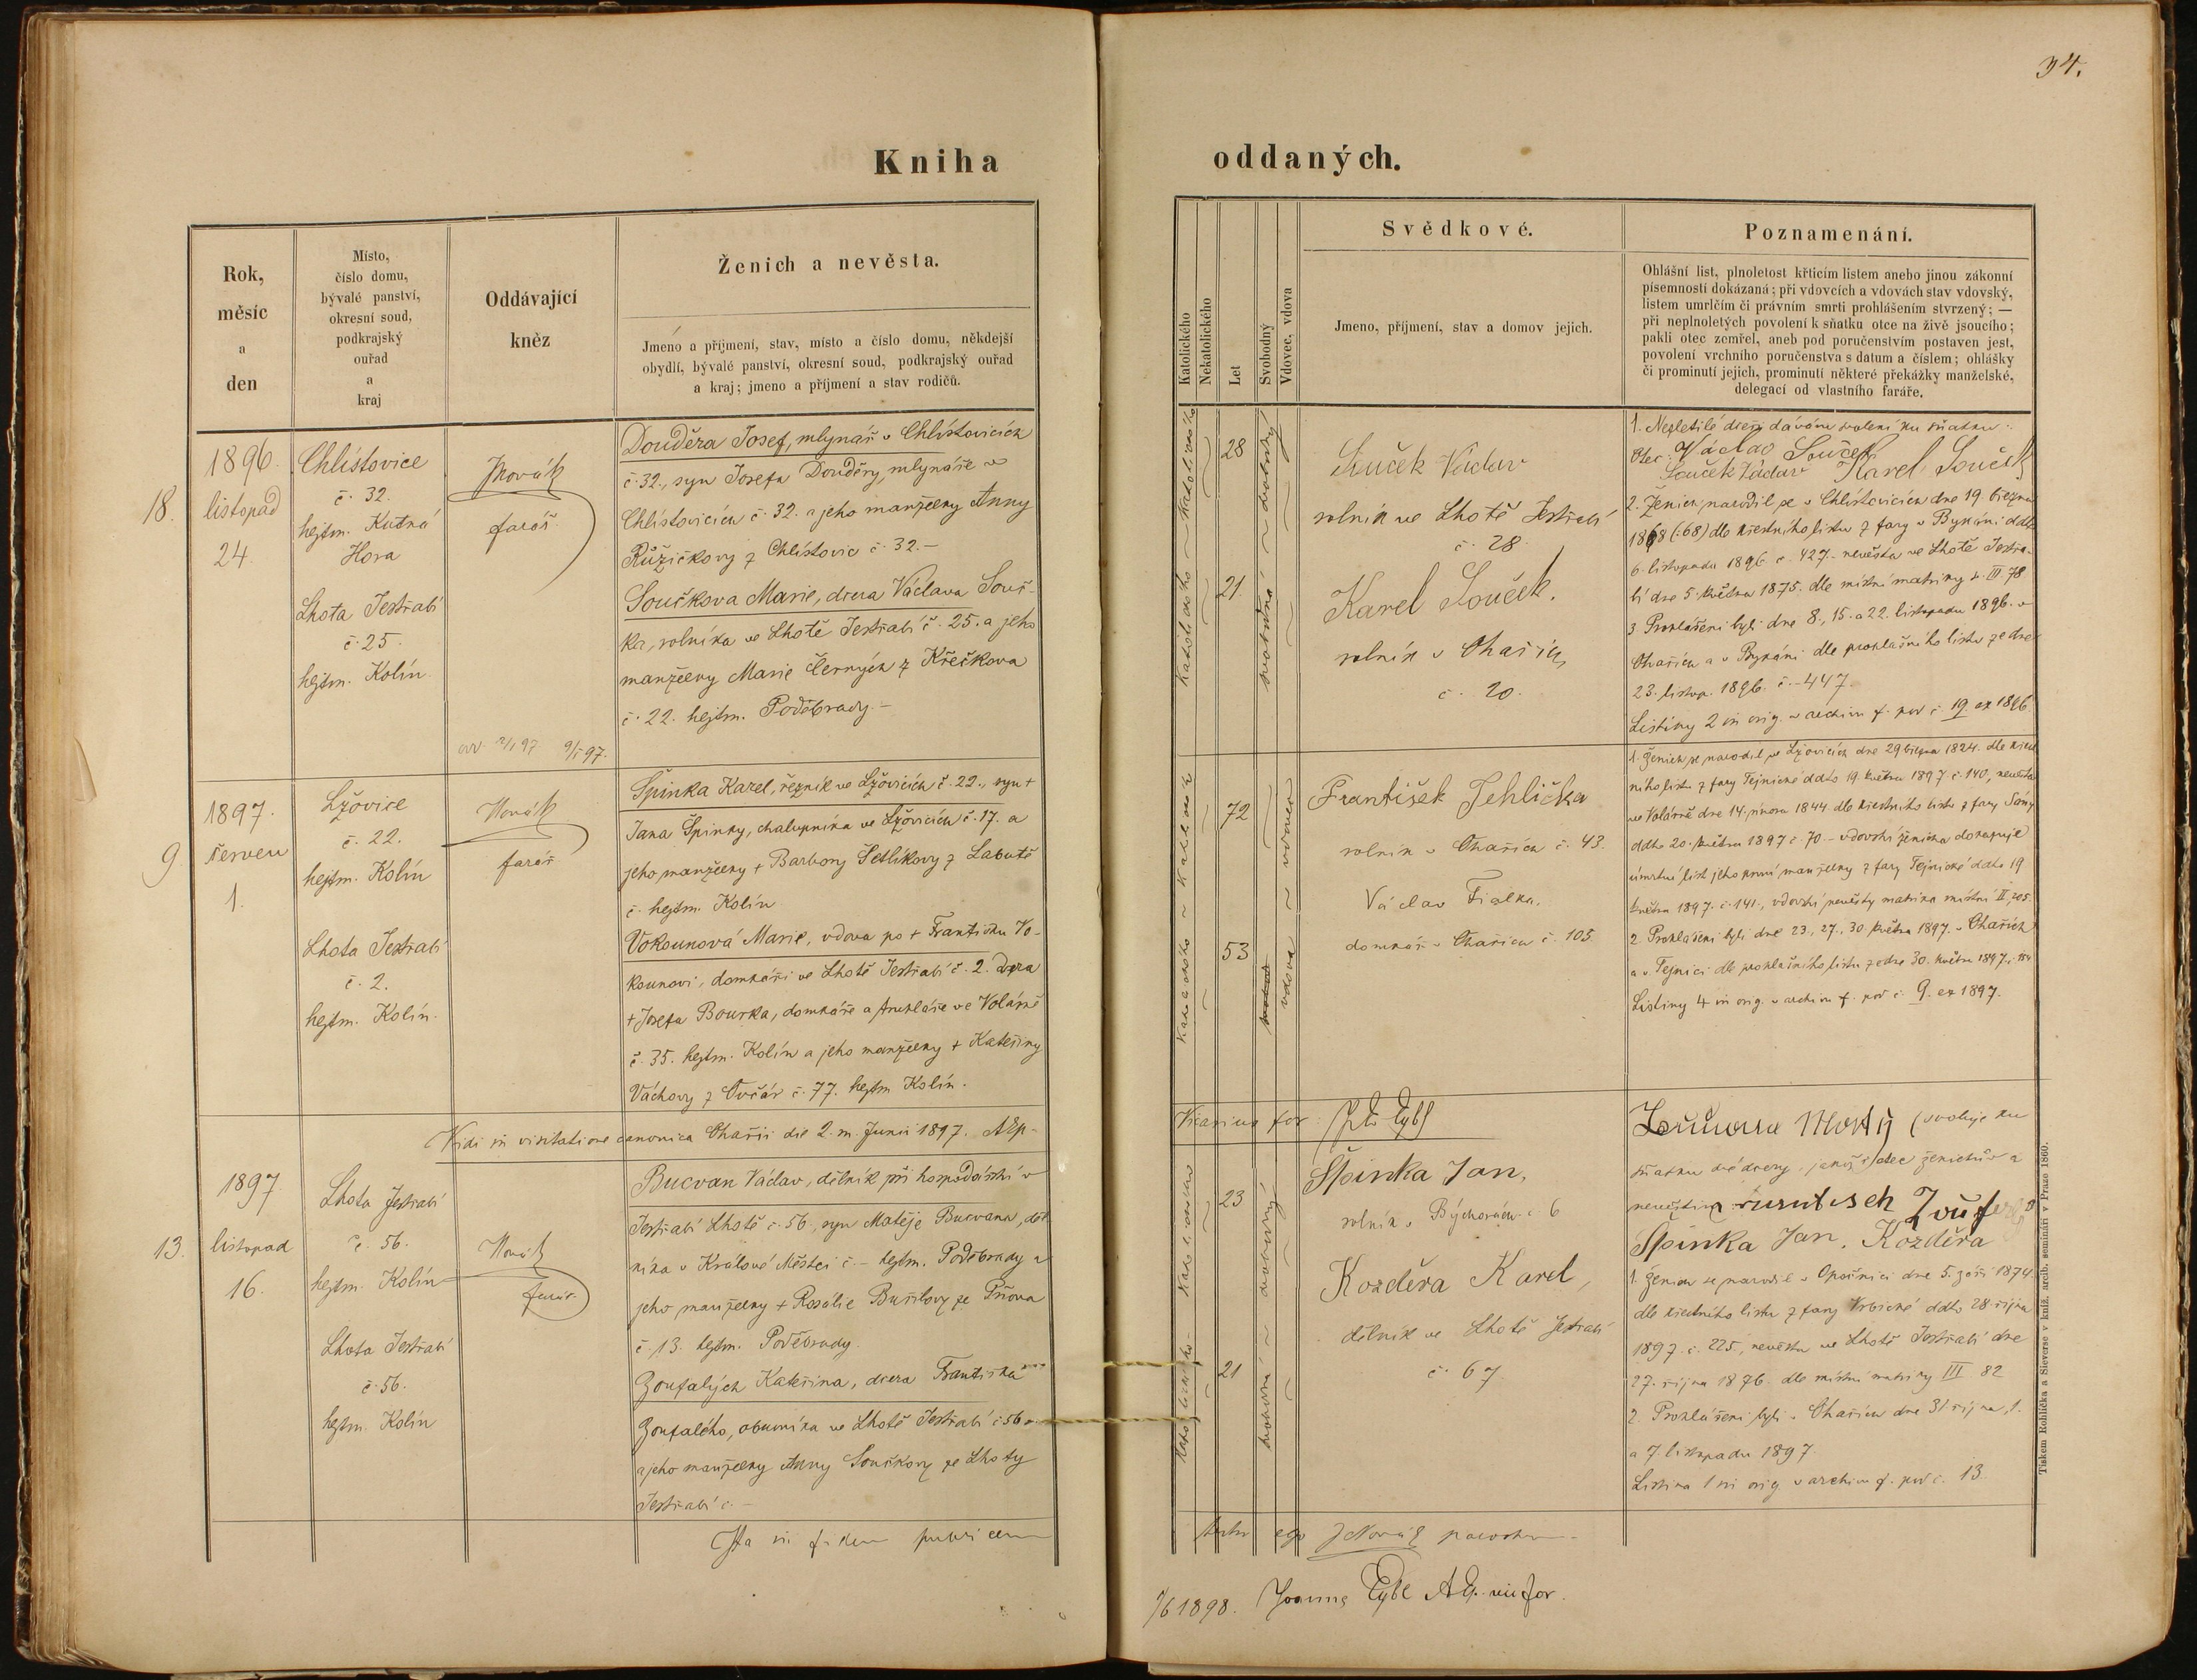 94.
Kniha
oddaných.
Rok,
měsíc
a
den
Místo,
číslo domu,
bývalé panství,
okresní soud,
podkrajský
ouřad
a
kraj
Oddávající
kněz
Ženich a nevěsta.
Jméno a příjmení, stav, místo a číslo domu, někdejší
obydlí, bývalé panství, okresní soud, podkrajský ouřad
a kraj; jmeno a příjmení a stav rodičů.
Katolického
Nekatolického
Let
Svobodný
Vdovec, vdova
Svědkové.
Jmeno, příjmení, stav a domov jejich.
Poznamenání.
Ohlášní list, plnoletost křticím listem aneho jinou zákonní
písemností dokázaná; při vdovcích a vdovách stav vdovský,
listem umrlčím či právním smrti prohlášením stvrzený; —
při neplnoletých povolení k sňatku otce na živě jsoucího;
pakli otec zemřel, aneb pod poručenstvím postaven jest,
povolení vrchního poručenstva s datum a číslem; ohlášky
či prominutí jejich, prominutí některé překážky manželské,
delegací od vlastního faráře.
18.
1896.
listopad
24.
Chlístovice
č. 32.
hejtm. Kutná
Hora
Lhota Jestřabí
č. 25.
hejtm. Kolín
JNovák
farář
Douděra Josef, mlynář v Chlístovicích
č. 32., syn Josefa Douděry, mlynáře v
Chlístovicích č. 32. a jeho manželky Anny
Růžičkovy z Chlístovic č. 32.–
Součkova Marie, dcera Václava Souč-
ka, rolníka ve Lhotě Jestřabí č. 25. a jeho
manželky Marie Černých z Křečkova
č. 22. hejtm. Poděbrady.–
9/I 97.
28
21.
Souček Václav
rolník ve Lhotě Jestřabí
č. 28.
Karel Souček.
rolník v Ohařích
č. 20.
1. Nezletilé dceři dávám svolení ku sňatku:
Otec: Václav Souček
Souček Václav Karel Souček
2. Ženich narodil se v Chlístovicích dne 19. března
1868 (:68) dle křestního listu z fary v Bykáni ddto
6. listopadu 1896. č. 427.– nevěsta ve Lhotě Jestřa-
bí dne 5. května 1875. dle místní matriky t. III. 78
3 Prohlášeni byli dne 8., 15. a 22. listopadu 1896. v
Ohařích a v Bykáni dle prohlašního listu ze dne
23. listop. 1896. č. 447.
Listiny 2 in orig. v archivu f. pod č. 19. ex 1896
9
1897.
červen
1.
Lžovice
č. 22.
hejtm. Kolín
Lhota Jestřabí
č. 2.
hejtm. Kolín.
Novák
farář
Špinka Karel, řezník ve Lžovicích č. 22., syn +
Jana Špinky, chalupníka ve Lžovicích č. 17. a
jeho manželky + Barbory Šetlíkovy z Labutě
č. hejtm. Kolín
Vokounová Marie, vdova po + Františku Vo-
kounovi, domkáři ve Lhotě Jestřabí č. 2. dcera
+ Josefa Bourka, domkáře a truhláře ve Volárně
č. 35. hejtm. Kolín a jeho manželky + Kateřiny
Váchovy z Ovčár č. 77. hejtm Kolín.
72
53
vdovec
vdova
František Jehlička
rolník v Ohařích č. 43.
Václav Fialka.
domkář v Ohařích č. 105
1. Ženich se narodil ve Lžovicích dne 29 března 1824. dle křest
ního listu z fary Tejnické ddto 19. května 1897 č. 140, nevěsta
ve Volárně dne 14. února 1844. dle křestního listu z fary Sány
ddto 20. května 1897 č. 70.– vdovství ženicha dokazuje
úmrtní list jeho první manželky z fary Tejnické ddto 19
května 1897. č. 141., vdovství nevěsty matrika místní II, 205.
2 Prohlášeni byli dne 23., 27., 30. května 1897. v Ohařích
a v Tejnici dle prohlašního listu ze dne 30. května 1897. č.
Listiny 4 in orig. v archivu f. pod č. 9. ex 1897.
Vidi in visitatione canonica Ohařii die 2. m. Junii 1897.
Vicarius for.
13.
1897.
listopad
16.
Lhota Jestřabí
č. 56.
hejtm. Kolín
Lhota Jestřabí
č. 56.
hejtm. Kolín
Novák
farář
Bucvan Václav, dělník při hospodářství v
Jestřabí Lhotě č. 56., syn Matěje Bucvana, děl
níka v Králově Městci č.– hejtm. Poděbrady a
jeho manželky + Rosálie Buršlovy ze Pňova
č. 13. hejtm. Poděbrady.
Zoufalých Kateřina, dcera Františka
Zoufalého, obuvníka ve Lhotě Jestřabí č. 56
a jeho manželky Anny Součkovy ze Lhoty
Jestřabí č.–
23
21
Špinka Jan,
rolník v Býchorách č. 6
Kozděra Karel,
dělník ve Lhotě Jestřabí
č. 67.
svoluje ku
sňatku své dcery, jakož i otec ženichův a
Špinka Jan. Kozděra
1. Ženich se narodil v Opočnici dne 5. září 1874
dle křestního listu z fary Vrbické ddto 28. října
1897. č. 225, nevěsta ve Lhotě Jestřabí dne
27. října 1876. dle místní matriky III 82
2. Prohlášeni byli v Ohařích dne 31 října, 1.
a 7. listopadu 1897.
Listina 1 in orig. v archivu f. pod č. 13.
Ita in fidem
JNovák parochus
1/6 1898. Joannes Eybl
Tiskem Rohlíčka a Sieverse v kníž. arcib. semináři v Praze 1860.